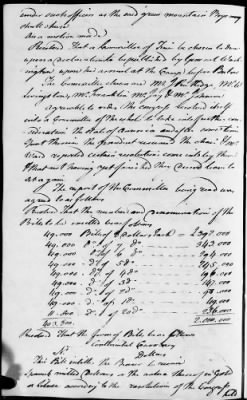 under such officers as the and your mountain Prov. may
shall chuse
On a motion made
Resolved That a Committee of Five be chosen to draw
up a declaration to be published by General Wash-
ington upon his arrival at the Camp before Boston
The Committee chosen are Mr J. Rutledge Mr W.
Livingston, Mr Franklin, Mr Jay & Mr Johnson
Agreeable to order The congress resolved itself
into a Committee of the whole to take into farther con-
sideration the State of America and after some time
spent therein the president resumed the chair & Mr
Ward reported certain resolutions come into by them
& that not having yet finished they desired leave to
sit again
The report of the Committee being read was
agreed to as follows
Resolved That the number and denomination of the
Bills to be emitted be as follows
49,000 Bills of 8 Dollars each — 392,000
49,000 Do of 7 Do — 343,000
49,000 Do of 6 Do — 294,000
49,000 Do of 5 Do — 245,000
49,000 Do of 4 Do — 196,000
49,000 Do of 3 Do — 147,000
49,000 Do of 2 Do — 98,000
49,000 Do of 1 Do — 49,000
11,800 Do of 20 Do — 236,000
403,800 2,000,000
Resolved That the form of Bills be as follows
Continental Currency
No Dollars
This Bill entitles the Bearer to receive
Spanish milled Dollars or the value thereof in Gold
or Silver according to the resolutions of the Congress